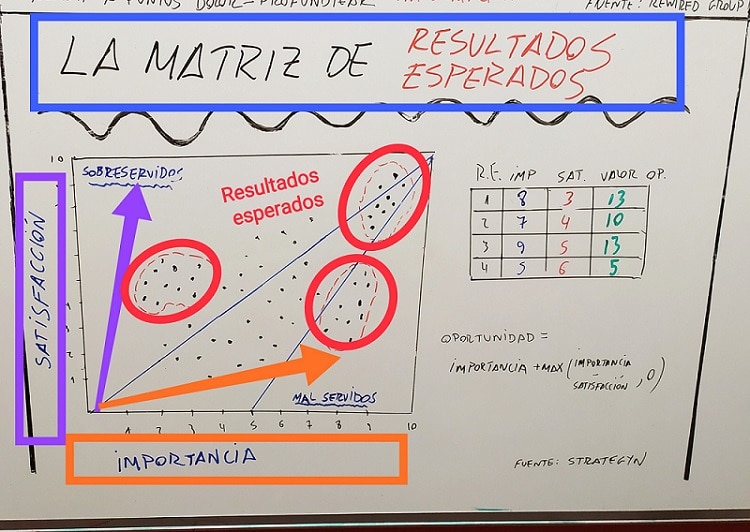 FUENTE: REWIRED GROUP
LA MATRIZ DE RESULTADOS
ESPERADOS
10
SOBRESERVIDOS
Resultados
esperados
SATISFACCIÓN
4
3
2
1
MAL SERVIDOS
1 2 3 4 5 6 7 8 9 10
IMPORTANCIA
R.E. IMP SAT. VALOR OP.
1 8 3 13
2 7 4 10
3 9 5 13
4 5 6 5
OPORTUNIDAD =
IMPORTANCIA + MAX (IMPORTANCIA - SATISFACCIÓN, 0)
FUENTE: STRATEGYN